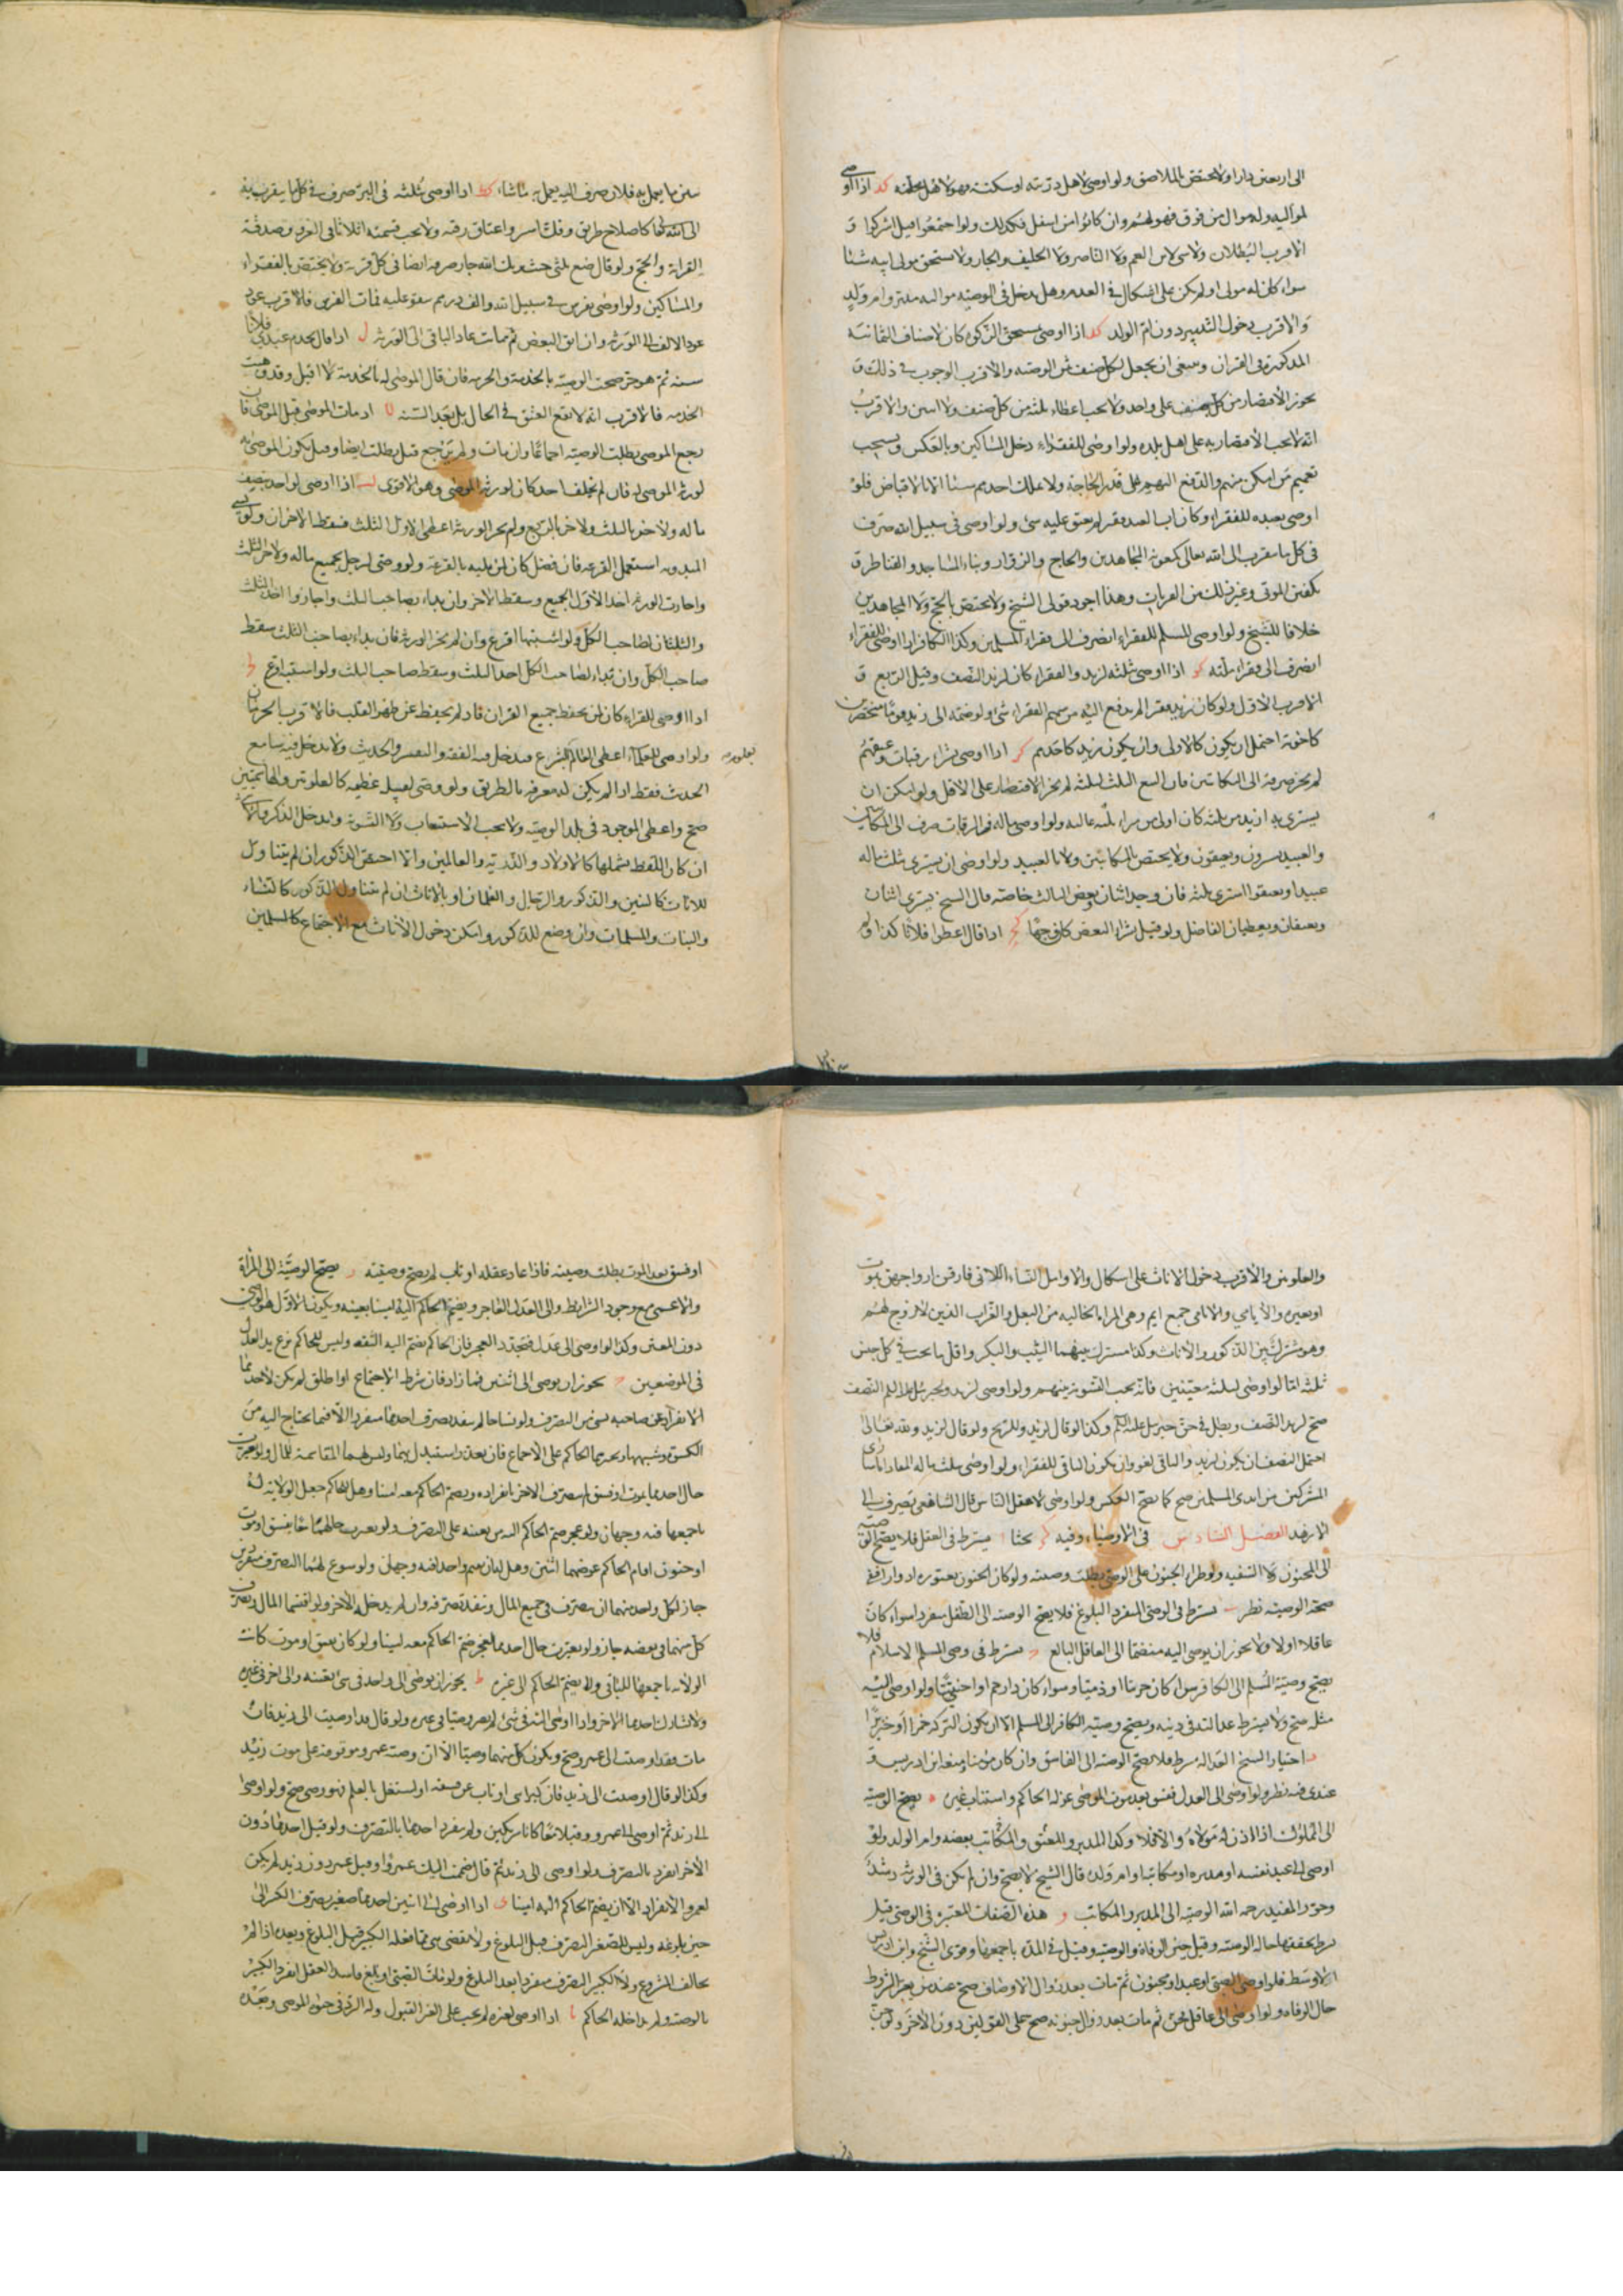 الى اربعين دارا ولا يختص بالملاصق ولو اوصى لاهل دربه او سكته فهو لاهل محلته كد اذا اوصى
لمواليه وله موال من فوق فهو لهم وان كانوا من اسفل فكذلك ولو اجتمعوا قيل اشركوا و
الاقرب البطلان ولا شى لابن العم ولا الناصر ولا الحليف والجار ولا يستحق مولى ابيه شيئا
سواء كان له مولى او لم يكن على اشكال فى العدم وهل يدخل فى الوصية مواليه مدبر وام ولد
والاقرب دخول التدبير دون ام الولد اذا اوصى لمستحق الزكوة كان لاصناف الثمانية
المذكورة فى القران وينبغى ان يجعل لكل صنف ثمن الوصية والاقرب الوجوب فى ذلك و
يجوز الاقتصار من كل صنف على واحد ولا يجب اعطاء ثلثة من كل صنف ولا اثنين والاقرب
انه لا يجب الاقتصار به على اهل بلده ولو اوصى للفقراء دخل المساكين وبالعكس ويستحب
تعميم من امكن منهم والدفع اليهم على قدر الحاجة ولا يملك احدهم شيئا الا بالاقباض فلو
اوصى بعبده للفقراء وكان ابا لعبد فقير لم يعتق عليه شى ولو اوصى فى سبيل الله صرف
فى كل ما يتقرب الى الله تعالى كمعونة المجاهدين والحاج والزوار وبناء المساجد والقناطر و
تكفين الموتى وغير ذلك من القربات وهذا اجود قولى الشيخ ولا يختص بالحج ولا المجاهدين
خلافا للشيخ ولو اوصى المسلم للفقراء انصرف الى فقراء المسلمين وكذا الكافر اذا اوصى للفقراء
انصرف الى فقراء ملته كو اذا اوصى بثلثه لزيد والفقراء كان لزيد النصف وقيل الربع و
الاقرب الاول ولو كان زيد فقيرا لم يدفع اليه من سهم الفقراء شى ولو ضمه الى زيد قوما منحصرين
كاخوته احتمل ان يكون كالاولى وان يكون زيد كاحدهم كز اذا اوصى بشراء رقبات وعتقهم
لم يجز صرفه الى المكاتبين فان اتسع الثلث لثلثة لم يجز الاقتصار على الاقل ولو امكن ان
يشترى به ازيد من ثلثة كان اولى من شراء ثلثة غالية ولو اوصى بماله فى الرقاب صرف الى المكاتبين
والعبيد يشرون ويعتقون ولا يختص بالمكاتبين ولا بالعبيد ولو اوصى ان يشترى بثلث ماله
عبيدا ويعتقوا اشترى ثلثة فان وجد اثنان وبعض الثالث خاصة قال الشيخ يشترى اثنان
ويعتقان ويعطيان الفاضل ولو قيل بشراء البعض كان وجها كح اذا قال اعطوا فلانا كذا ولم
يبين ما يعمل به فلان صرف اليه يعمل به ما شاء كط اذا اوصى بثلثه فى البر صرف فى كل ما يتقرب به
الى الله كاصلاح طريق وفك اسر واعتاق رقبة ولا يجب قسمته اثلاثا فى الغزو وصدقة
القرابة والحج ولو قال ضع ثلثى حيث يريك الله جاز صرفه ايضا فى كل قربة ولا يختص بالفقراء
والمساكين ولو اوصى بفرس فى سبيل الله والف درهم ينفق عليه فمات الفرس فالاقرب عود
عود الالف الى الورثة وان انفق البعض ثم مات عاد الباقى الى الورثة ل اذا قال يخدم عبدى فلانا
سنة ثم هو حر صحت الوصية بالخدمة والحرية فان قال الموصى له بالخدمة لا اقبل وقد وهبت
الخدمة فالاقرب انه لا يقع العتق فى الحال بل بعد السنة لا اذ مات الموصى قبل الموصى فان
رجع الموصى بطلت الوصية اجماعا وان مات ولم يرجع قيل بطلت ايضا وقيل يكون الموصى به
لورثة الموصى له فان لم يخلف احد كان لورثة الموصى وهو الاقوى لب اذا اوصى لواحد بنصف
ماله ولاخر بالثلث ولاخر بالربع ولم يجز الورثة اعطى الاول الثلث فسقط الاخران ولو نسى
المبدوء استعمل القرعة فان فضل كان لمن يليه بالقرعة ولو وصى لرجل بجميع ماله ولاخر بالثلث
واجازت الورثة اخذ الاول الجميع وسقط الاخر وان بداء بصاحب الثلث واجازوا اخذ الثلث
والثلثان لصاحب الكل ولو اشتبها اقرع وان لم يجز الورثة فان بداء بصاحب الثلث سقط
صاحب الكل وان بداء لصاحب الكل اخذ الثلث وسقط صاحب الثلث ولو اشتبه اقرع
اذا اوصى للقراء كان لمن يحفظ جميع القران فان لم يحفظ عن ظهر القلب فالاقرب الحرمان
ولو اوصى للعلماء اعطى العالم بالشرع فيدخل فيه الفقه والتفسير والحديث ولا يدخل فيه سامع
الحديث فقط اذا لم يكن له معرفة بالطريق ولو وصى لقبيلة عظيمة كالعلويين والهاشميين
صح واعطى الموجود فى بلد الوصية ولا يجب الاستيعاب ولا التسوية ويدخل الذكر والانثى
ان كان اللفظ يشملها كالاولاد والذرية والعالمين وانما اختص الذكور ان لم يتناول
للاناث كالبنين والذكور والرجال والغلمان او بالاناث ان لم يتناول الذكور كالنساء
والبنات والمسلمات وان وضع للذكور وامكن دخول الاناث مع الاجتماع كالمسلمين
والعلويين والاقرب دخول الاناث على اشكال والارامل النساء اللاتى فارقن ازواجهن بموت
او بغيره والايامى جمع ايم وهى المراة الخالية من البعل والعزاب الذين لا زوج لهم
وهو مشترك بين الذكور والاناث وكذا مشترك بينهما الثيب والبكر واقل ما يجب فى كل جنس
ثلثة اما لو اوصى لثلثة معينين فانه يجب التسوية بينهم ولو اوصى لزيد ولجبرئيل عليه السلم النصف
صح لزيد النصف وبطل فى حق جبرئيل عليه السلم وكذا لو قال لزيد وللريح ولو قال لزيد ولله تعالى
احتمل النصف ان يكون لزيد والباقى لغو وان يكون الباقى للفقراء ولو اوصى بثلث ماله لمفاداة اسارى
المشركين من ايدى المسلمين صح كما يصح العكس ولو اوصى لاعقل الناس قال الشافعى يصرف الى
الازهد الفصل السادس فى الاوصياء وفيه بحثا ا يشترط فى العقل فلا يصح الوصية
الى المجنون ولا السفيه ولو طراء الجنون على الوصى بطلت وصيته ولو كان الجنون يعتوره ادوارا ففى
صحة الوصية نظر ب يشترط فى الوصى المنفرد البلوغ فلا يصح الوصية الى الطفل منفردا سواء كان
عاقلا اولا ولا يجوز ان يوصى اليه منضما الى العاقل البالغ ج يشترط فى وصى المسلم الاسلام فلا
يصح وصية المسلم الى الكافر سواء كان حربيا او ذميا وسواء كان ذا رحم او اجنبيا ولو اوصى اليه
مثله صح ولا يشترط عدالته فى دينه ويصح وصية الكافر الى المسلم الا ان يكون التركة خمرا او خنزيرا
د اختيار الشيخ العدالة شرط فلا يصح الوصية الى الفاسق وان كان مؤمنا ومنعه ابن ادريس و
عندى فيه نظر ولو اوصى الى العدل ففسق بعد موت الموصى عزله الحاكم واستناب غيره ه يصح الوصية
الى المملوك اذا اذن له مولاه والا فلا وكذا المدبر والمعتق والمكاتب بعضه وام الولد ولو
اوصى الى عبد نفسه او مدبره او مكاتبه او ام ولده قال الشيخ لا يصح وان لم يكن فى الورثة رشيد
وجوز المفيد رحمه الله الوصية الى المدبر والمكاتب و هذه الصفات المعتبرة فى الوصى قيل
شرط تحققها حالة الوصية وقيل حين الوفاة والوصية وقيل فى المدة باجمعها وقوى الشيخ وابن ادريس
الاوسط فلو اوصى الى صبى او عبد او مجنون ثم مات بعد زوال الاوصاف صح عند من يعتبر الشروط
حال الوفاة ولو اوصى الى عاقل فجن ثم مات بعد زوال جنونه صح على القولين دون الاخر ولو جن
او فسق بعد الموت بطلت وصيته فاذا عاد عقله او تاب لم يصح وصيته ز يصح الوصية الى المراة
والاعمى مع وجود الشرايط والى العدل العاجز ويضم الحاكم اليه امينا يعينه ويكون الاول هو الوصى
دون المعين وكذا لو اوصى الى عدل فتجدد العجز فان الحاكم يضم اليه الثقة وليس للحاكم نزع يد العدل
فى الموضعين ح يجوز ان يوصى الى اثنين فما زاد فان شرط الاجتماع او اطلق لم يكن لاحدهما
الانفراد عن صاحبه بشى من التصرف ولو تشاحا لم ينفذ تصرف احدهما منفردا الا فيما يحتاج اليه من
الكسوة وشبهها ويجبرهما الحاكم على الاجماع فان تعذر استبدل بهما وليس لهما المقاسمة للمال ولو تغيرت
حال احدهما بموت او فسق لم يتصرف الاخر بانفراده ويضم الحاكم معه امينا وهل للحاكم جعل الولاية له
باجمعها فيه وجهان ولو عجز ضم الحاكم اليه من يعينه على التصرف ولو تغيرت حالهما معا بفسق او موت
او جنون اقام الحاكم عوضهما اثنين وهل له ان يقيم واحدا فيه وجهان ولو سوغ لهما التصرف منفردين
جاز لكل واحد منهما ان يتصرف فى جميع المال وينفذ تصرفه وان لم يدخل الاخر ولو اقتسما المال وتصرف
كل منهما فى بعضه جاز ولو تغيرت حال احدهما بعجز ضم الحاكم معه امينا ولو كان بفسق او موت كانت
الولاية باجمعها للباقى ولا يضم الحاكم الى غيره ط يجوز ان يوصى الى واحد فى شى بعينه والى اخر فى غيره
ولا يشارك احدهما الاخر واذا اوصى اليه فى شى لم يصر وصيا فى غيره ولو قال قد اوصيت الى زيد فان
مات فقد اوصيت الى عمرو صح ويكون كل منهما وصيا الا ان وصية عمرو موقوفة على موت زيد
وكذا لو قال اوصيت الى زيد فان كبر ابنى او تاب عن فسقه او اشتغل بالعلم فهو وصى صح ولو اوصى
الى زيد ثم اوصى الى عمرو وقبلا معا كانا شريكين ولم ينفرد احدهما بالتصرف ولو قبل احدهما دون
الاخر انفرد بالتصرف ولو اوصى الى زيد ثم قال ضممت اليك عمروا وقبل عمرو دون زيد لم يكن
لعمرو الانفراد الا ان يضم الحاكم اليه امينا ى اذا اوصى الى اثنين احدهما صغير يصرف الكبير الى
حين بلوغه وليس للصغير التصرف قبل البلوغ ولا ينقض شى مما فعله الكبير قبل البلوغ وبعده اذا لم
يخالف المشروع ولا الكبير التصرف منفردا بعد البلوغ ولو مات الصبى او بلغ فاسد العقل انفرد الكبير
بالوصية ولم يداخله الحاكم يا اذا اوصى لغيره لم يجب على الغير القبول وله الرد فى حيوة الموصى وبعده